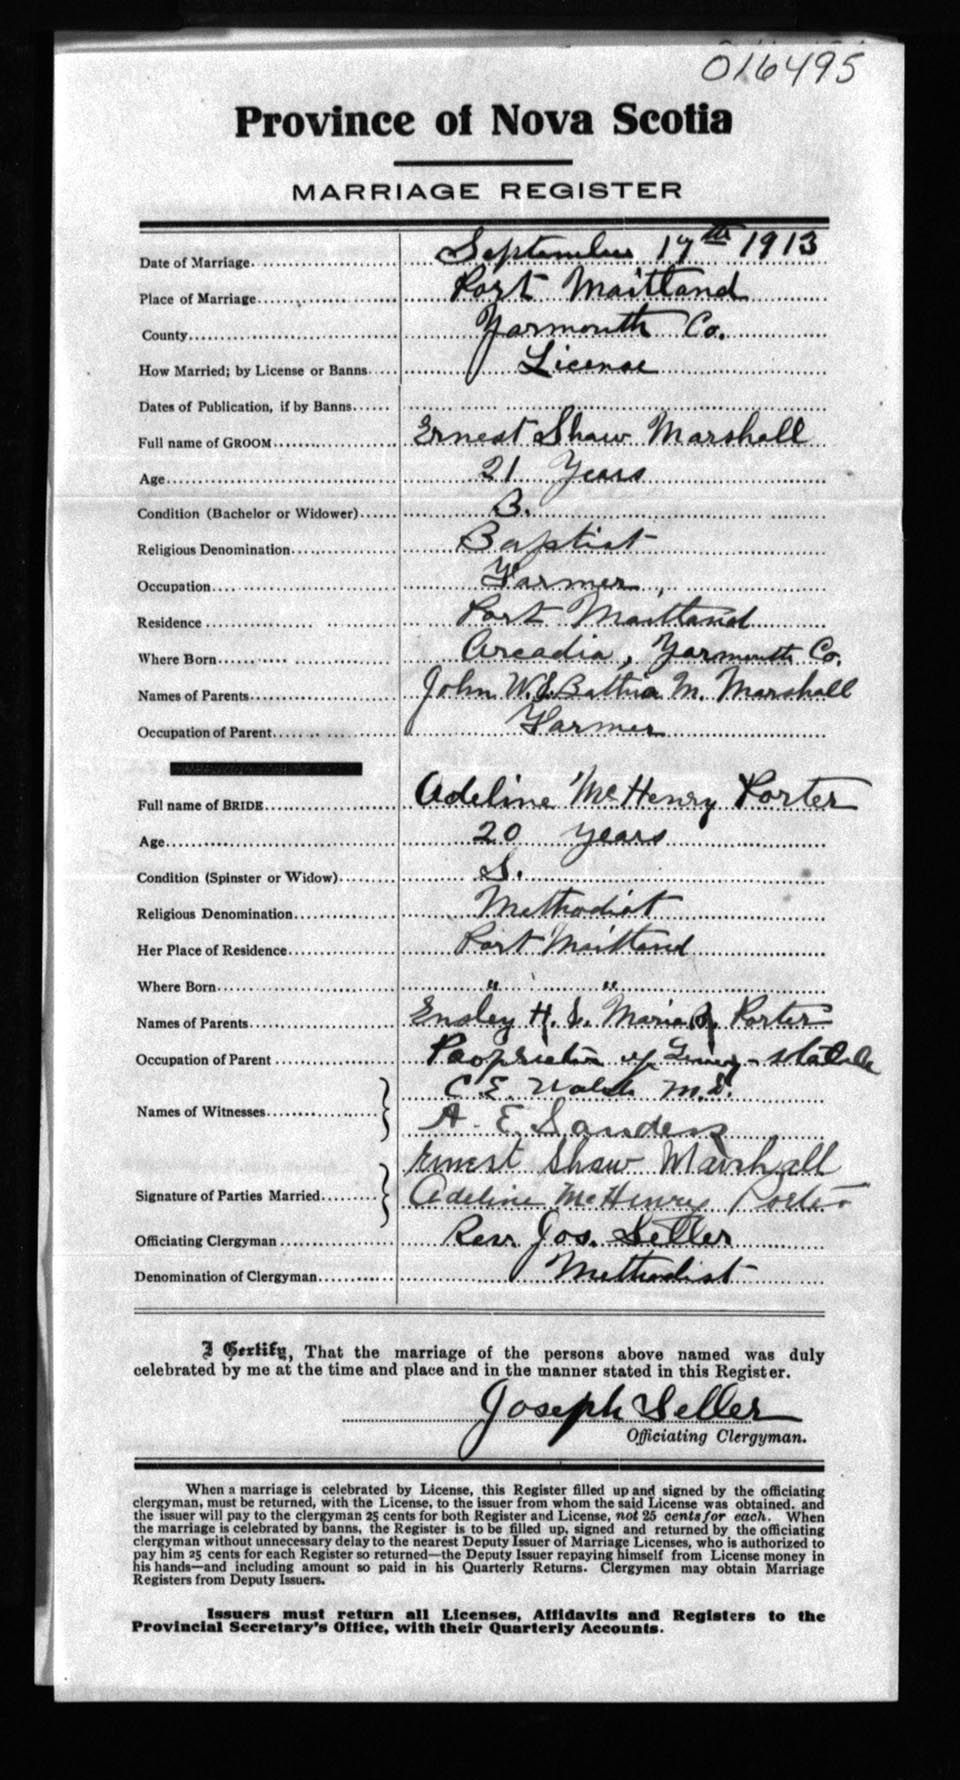 016495
Province of Nova Scotia
MARRIAGE REGISTER
Date of Marriage September 17th 1913
Place of Marriage Port Maitland
County Yarmouth Co.
How Married; by License or Banns License
Dates of Publication, if by Banns
Full name of GROOM Ernest Shaw Marshall
Age 21 Years
Condition (Bachelor or Widower) B.
Religious Denomination Baptist
Occupation Farmer
Residence Port Maitland
Where Born Arcadia, Yarmouth Co.
Names of Parents John W. & M. Marshall
Occupation of Parent Farmer
Full name of BRIDE Adeline McHenry Porter
Age 20 years
Condition (Spinster or Widow) S.
Religious Denomination Methodist
Her Place of Residence Port Maitland
Where Born " "
Names of Parents Ensley H. & Maria Porter
Occupation of Parent Proprietor of Livery-stable
Names of Witnesses C. E. M.D.
A. E. Sanders
Signature of Parties Married Ernest Shaw Marshall
Adeline McHenry Porter
Officiating Clergyman Rev. Jos. Seller
Denomination of Clergyman Methodist
I Certify, That the marriage of the persons above named was duly
celebrated by me at the time and place and in the manner stated in this Register.
Joseph Seller
Officiating Clergyman.
When a marriage is celebrated by License, this Register filled up and signed by the officiating
clergyman, must be returned, with the License, to the issuer from whom the said License was obtained. and
the issuer will pay to the clergyman 25 cents for both Register and License, not 25 cents for each. When
the marriage is celebrated by banns, the Register is to be filled up, signed and returned by the officiating
clergyman without unnecessary delay to the nearest Deputy Issuer of Marriage Licenses, who is authorized to
pay him 25 cents for each Register so returned—the Deputy Issuer repaying himself from License money in
his hands—and including amount so paid in his Quarterly Returns. Clergymen may obtain Marriage
Registers from Deputy Issuers.
Issuers must return all Licenses, Affidavits and Registers to the
Provincial Secretary's Office, with their Quarterly Accounts.